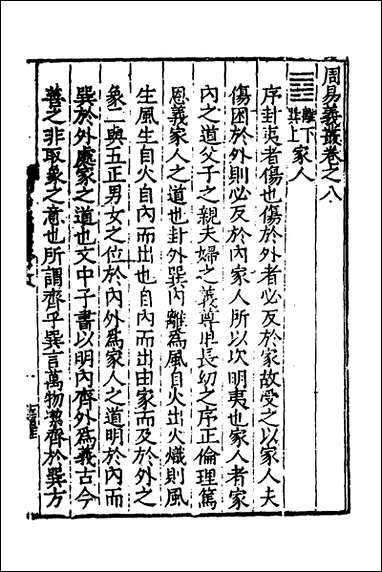 周易義叢卷之八
䷤離下巽上家人
序卦夷者傷也傷於外者必反於家故受之以家人夫
傷困於外則必反於內家人所以次明夷也家人者家
內之道父子之親夫婦之義尊卑長幼之序正倫理篤
恩義家人之道也卦外巽內離為風自火出火熾則風
生風生自火自內而出也自內而出由家而及於外之
象二與五正男女之位於內外為家人之道明於內而
巽於外處家之道也文中子書以明內齊外為義古今
善之非取象之意也所謂齊乎巽言萬物潔齊於巽方